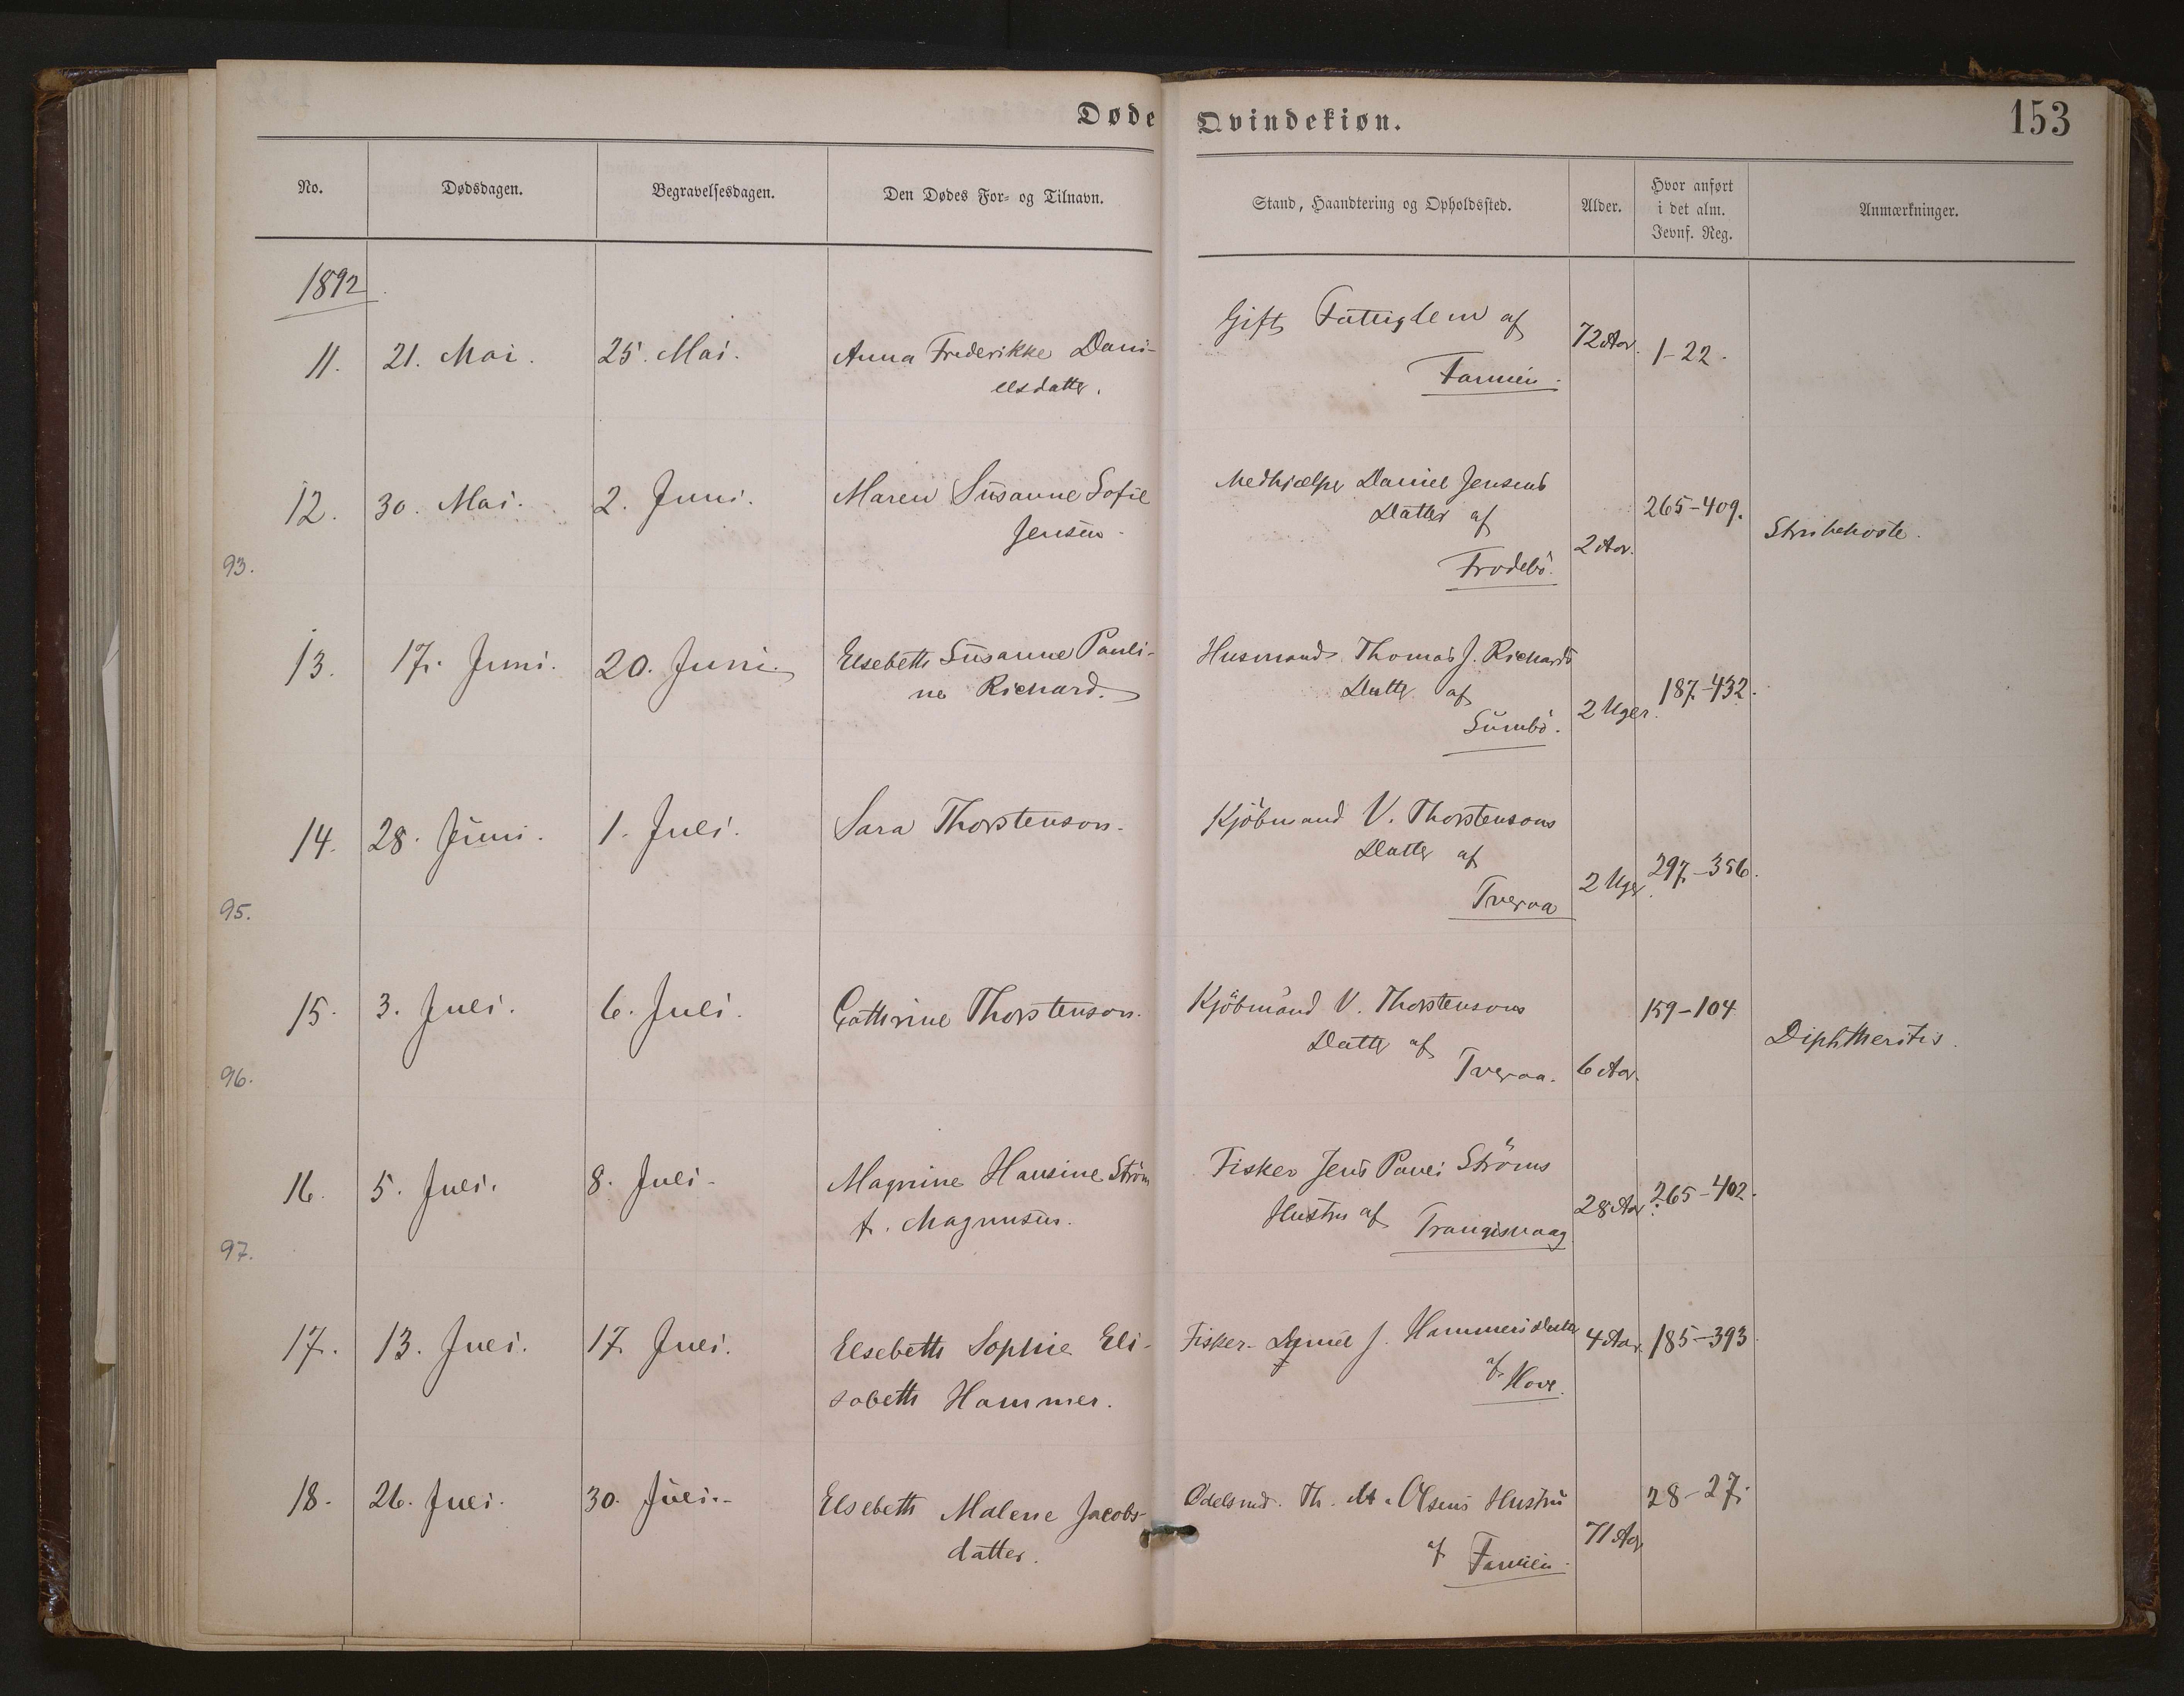 Døde Qvindekiøn. 153
No. Dødsdagen. Begravelsesdagen. Den Dødes For- og Tilnavn. Stand, Haandtering og Opholdssted. Alder. Hvor anført i det alm. Jevnf. Reg. Anmærkninger.
1892
11. 21. Mai. 25. Mai. Anna Frederikke Dani- Gift Fattiglem af 72 Aar. 1-22.
elsdatter. Famien.
12. 30. Mai. 2. Juni. Maren Susanne Sofie Medhjælper Daniel Jensens 265-409.
Jensen. Datter af 2 Aar. Strubehoste.
93. Frodebö.
13. 17. Juni. 20. Juni. Elsebeth Susanne Pauli- Husmand Thomas J. Richards
ne Richard. Datter af 2 Uger. 187-432.
Sumbö.
14. 28. Juni. 1. Juli. Sara Thorstenson. Kjöbmand V. Thorstensons
Datter af 2 Uger. 297-356.
95. Tveraa
15. 3. Juli. 6. Juli. Cathrine Thorstenson. Kjöbmand V. Thorstensons 159-104
Datter af Diphtheritis.
96. Tveraa. 6 Aar.
16. 5. Juli. 8. Juli. Magnine Hansine Ström Fisker Jens Pauli Ströms
f. Magnusen. Hustru af Trangisvaag 28 Aar. 265-402.
97.
17. 13. Juli. 17. Juli. Elsebeth Sophie Eli- Fisker Daniel J. Hammers Datter 4 Aar. 185-393.
sabeth Hammer. af Hove.
18. 26. Juli. 30. Juli. Elsebeth Malene Jacobs- Odelsmd. Th. M. Olsens Hustru 28-27.
datter. af Famien. 71 Aar